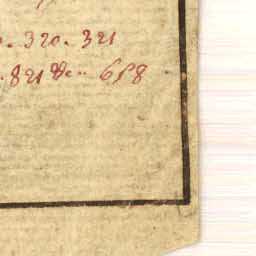 . 320 . 321
. 821 &c .. 658